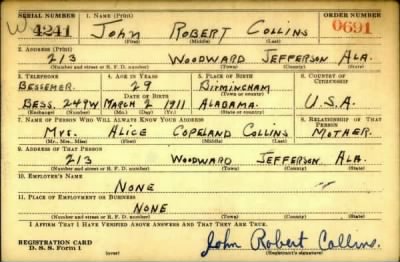 SERIAL NUMBER 1. NAME (Print) ORDER NUMBER
W 4241 John Robert Collins 0691
(First) (Middle) (Last)
2. ADDRESS (Print)
213 Woodward Jefferson Ala.
(Number and street or R. F. D. number) (Town) (County) (State)
3. TELEPHONE 4. AGE IN YEARS 5. PLACE OF BIRTH 6. COUNTRY OF CITIZENSHIP
Bessemer 29 Birmingham
DATE OF BIRTH (Town or county)
Bess. 249W March 2 1911 Alabama U.S.A.
(Exchange) (Number) (Mo.) (Day) (Yr.) (State or country)
7. NAME OF PERSON WHO WILL ALWAYS KNOW YOUR ADDRESS 8. RELATIONSHIP OF THAT PERSON
Mrs. Alice Copeland Collins Mother.
(Mr., Mrs., Miss) (First) (Middle) (Last)
9. ADDRESS OF THAT PERSON
213 Woodward Jefferson Ala.
(Number and street or R. F. D. number) (Town) (County) (State)
10. EMPLOYER'S NAME
None
11. PLACE OF EMPLOYMENT OR BUSINESS
None
(Number and street or R. F. D. number) (Town) (County) (State)
I AFFIRM THAT I HAVE VERIFIED ABOVE ANSWERS AND THAT THEY ARE TRUE.
REGISTRATION CARD
D. S. S. Form 1 (over) John Robert Collins.
(Registrant's signature)